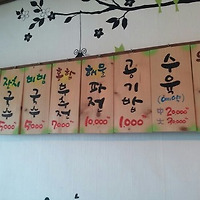 잔치
국수
5000
비빔
국수
5000
홍합
부추전
7000
해물
파전
10,000
공기밥
1,000
수육
中 20,000
大 30,000